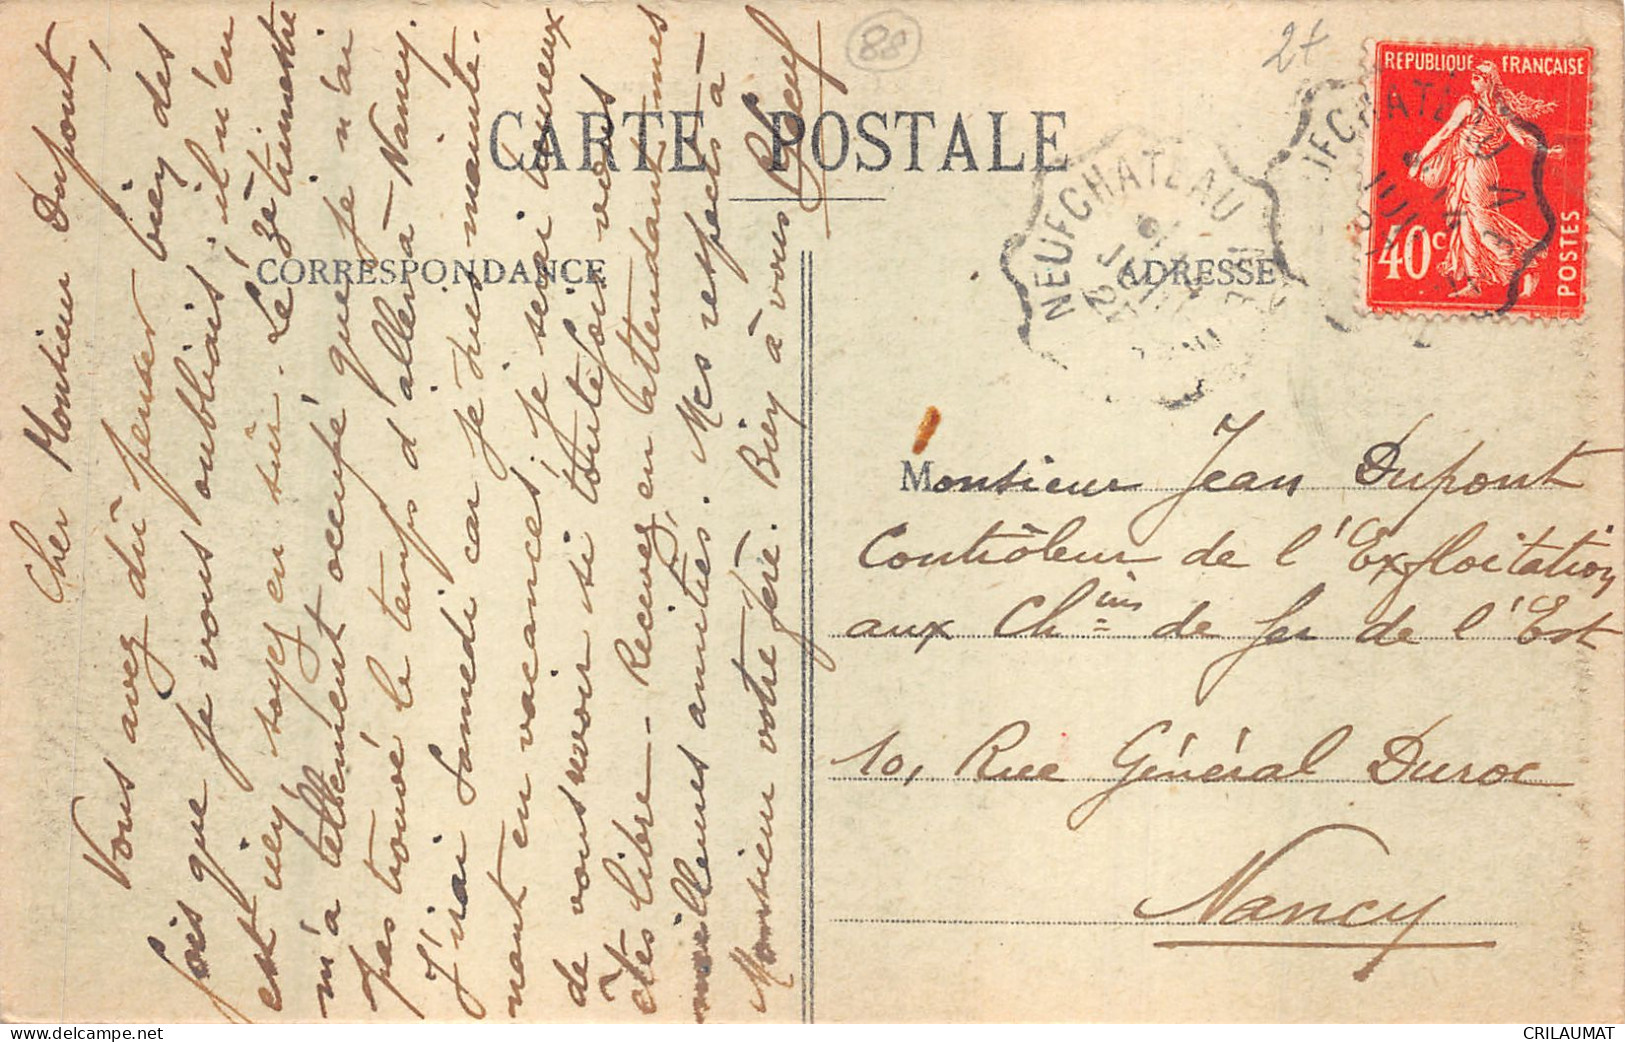 CARTE POSTALE
CORRESPONDANCE
ADRESSE
88
2+
REPUBLIQUE FRANÇAISE
40c
POSTES
NEUFCHATEAU
Cher Monsieur Dupont,
Vous avez dû penser bien des
fois que je vous oubliais, il n'en
est rien soyez en sûr. Le 2e trimestre
m'a tellement occupé que je n'ai
pas trouvé le temps d'aller à Nancy.
J'irai samedi car je suis mainte-
nant en vacances, je serai heureux
de vous revoir si toutefois vous
êtes libre – Recevez, en attendant mes
meilleures amitiés. Mes respects à
Monsieur votre père. Bien à vous
Monsieur Jean Dupont
Contrôleur de l'Exploitation
aux Chins de fer de l'Est
10, Rue Général Duroc
Nancy
CRILAUMAT